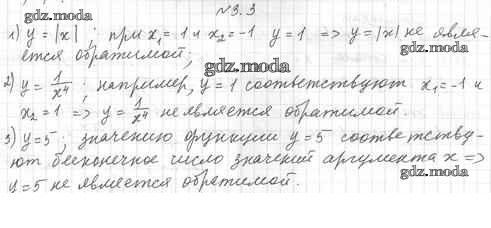 №3.3
gdz.moda gdz.moda
1) y = |x| ; при x₁ = 1 и x₂ = -1 y = 1 => y = |x| не явля-
ется обратимой;
gdz.moda
2) y = 1/x⁴ ; например, y = 1 соответствуют x₁ = -1 и
x₂ = 1 => y = 1/x⁴ не является обратимой.
gdz.moda gdz.moda
3) y = 5; значению функции y = 5 соответству-
ют бесконечное число значений аргумента x =>
y = 5 не является обратимой.
gdz.moda